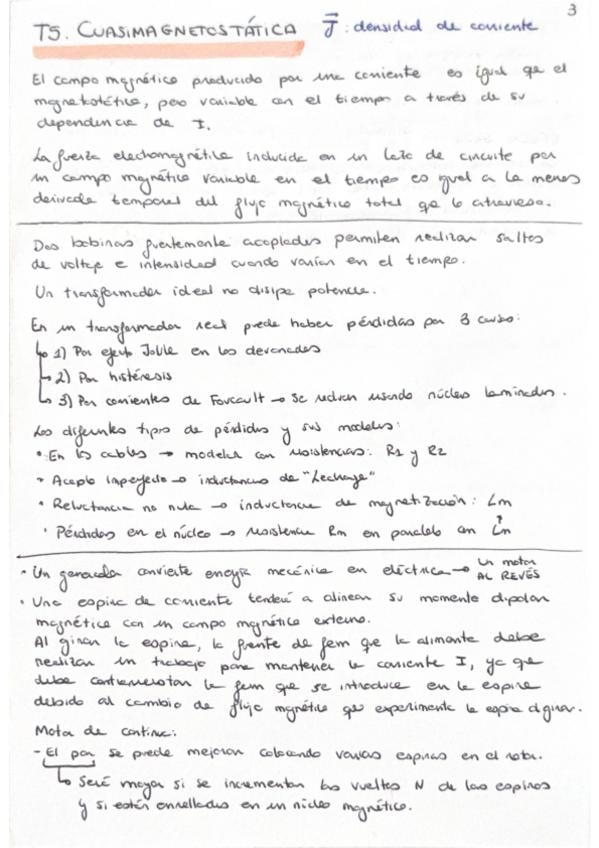 3
T5. CUASIMAGNETOSTÁTICA J⃗: densidad de corriente
El campo magnético producido por una corriente es igual que el
magnetostático, pero variable con el tiempo a través de su
dependencia de I.
La fuerza electromagnética inducida en un lazo de circuito por
un campo magnético variable en el tiempo es igual a la menos
derivada temporal del flujo magnético total que lo atraviesa.
Dos bobinas fuertemente acopladas permiten realizar saltos
de voltaje e intensidad cuando varían en el tiempo.
Un transformador ideal no disipa potencia.
En un transformador real puede haber pérdidas por 3 causas:
1) Por efecto Joule en los devanados
2) Por histéresis
3) Por corrientes de Foucault → Se reducen usando núcleo laminados.
Los diferentes tipos de pérdidas y sus modelos:
• En los cables → modelar con resistencias: R1 y R2
• Acoplo imperfecto → inductancias de "Lechage"
• Reluctancia no nula → inductancia de magnetización: Lm
• Pérdidas en el núcleo → resistencia Rm en paralelo con Lm
• Un generador convierte energía mecánica en eléctrica → Un motor
AL REVÉS
• Una espira de corriente tenderá a alinear su momento dipolar
magnético con un campo magnético externo.
Al girar la espira, la fuente de fem que la alimenta debe
realizar un trabajo para mantener la corriente I, ya que
debe contrarrestar la fem que se introduce en la espira
debido al cambio de flujo magnético que experimenta la espira al girar.
Motor de continua:
- El par se puede mejorar colocando varias espiras en el rotor.
Será mayor si se incrementan las vueltas N de las espiras
y si están enrolladas en un núcleo magnético.